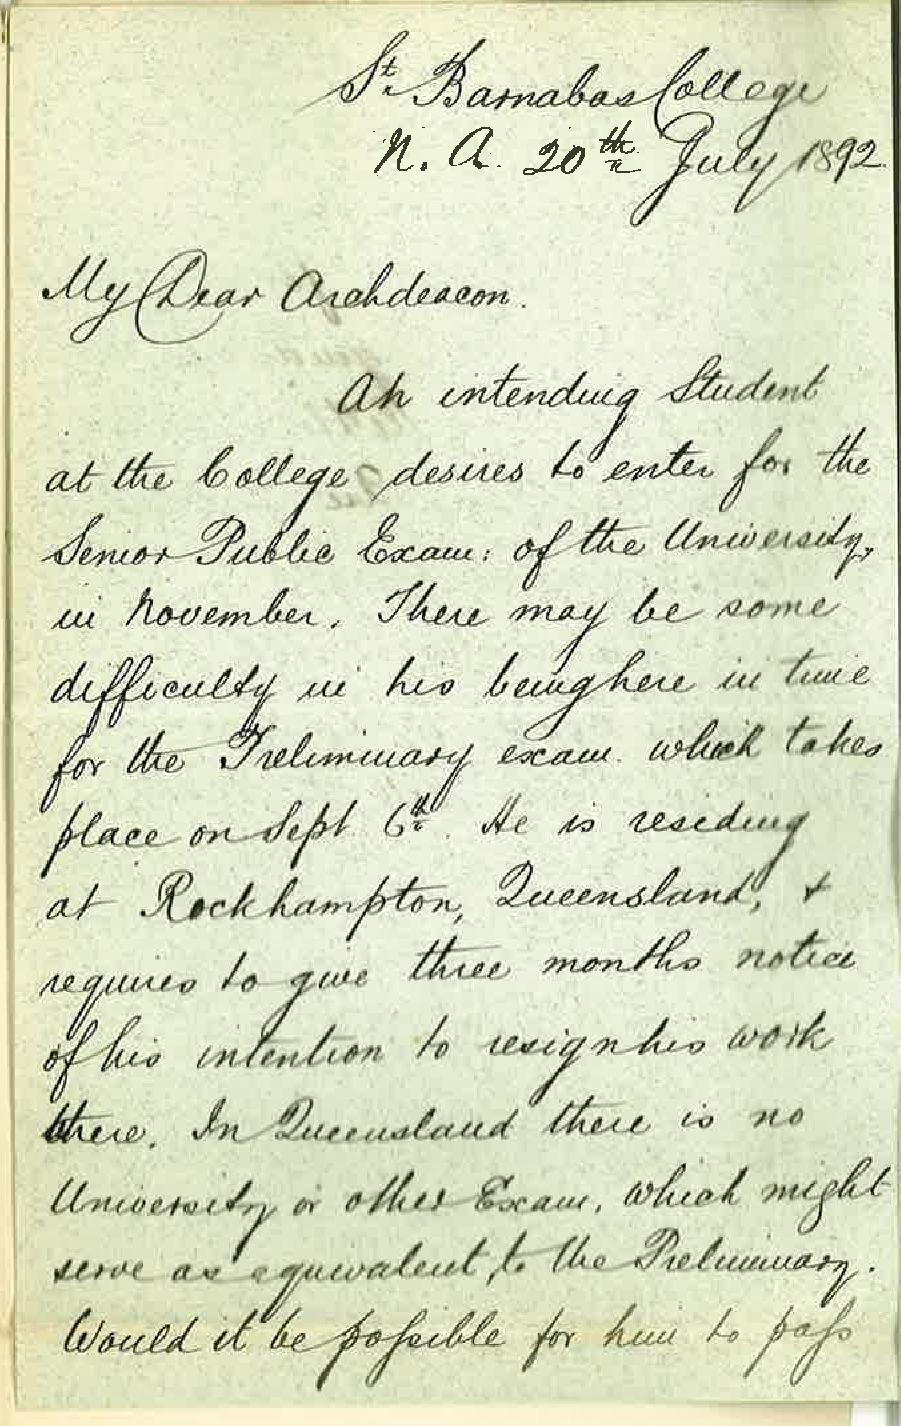 St. Barnabas College
N. A. 20th July 1892.
My Dear Archdeacon.
An intending Student
at the College desires to enter for the
Senior Public Exam: of the University,
in November. There may be some
difficulty in his being here in time
for the Preliminary exam. which takes
place on Sept. 6th. He is residing
at Rockhampton, Queensland, &
requires to give three months notice
of his intention to resign his work
there. In Queensland there is no
University or other Exam. which might
serve as equivalent to the Preliminary.
Would it be possible for him to pass